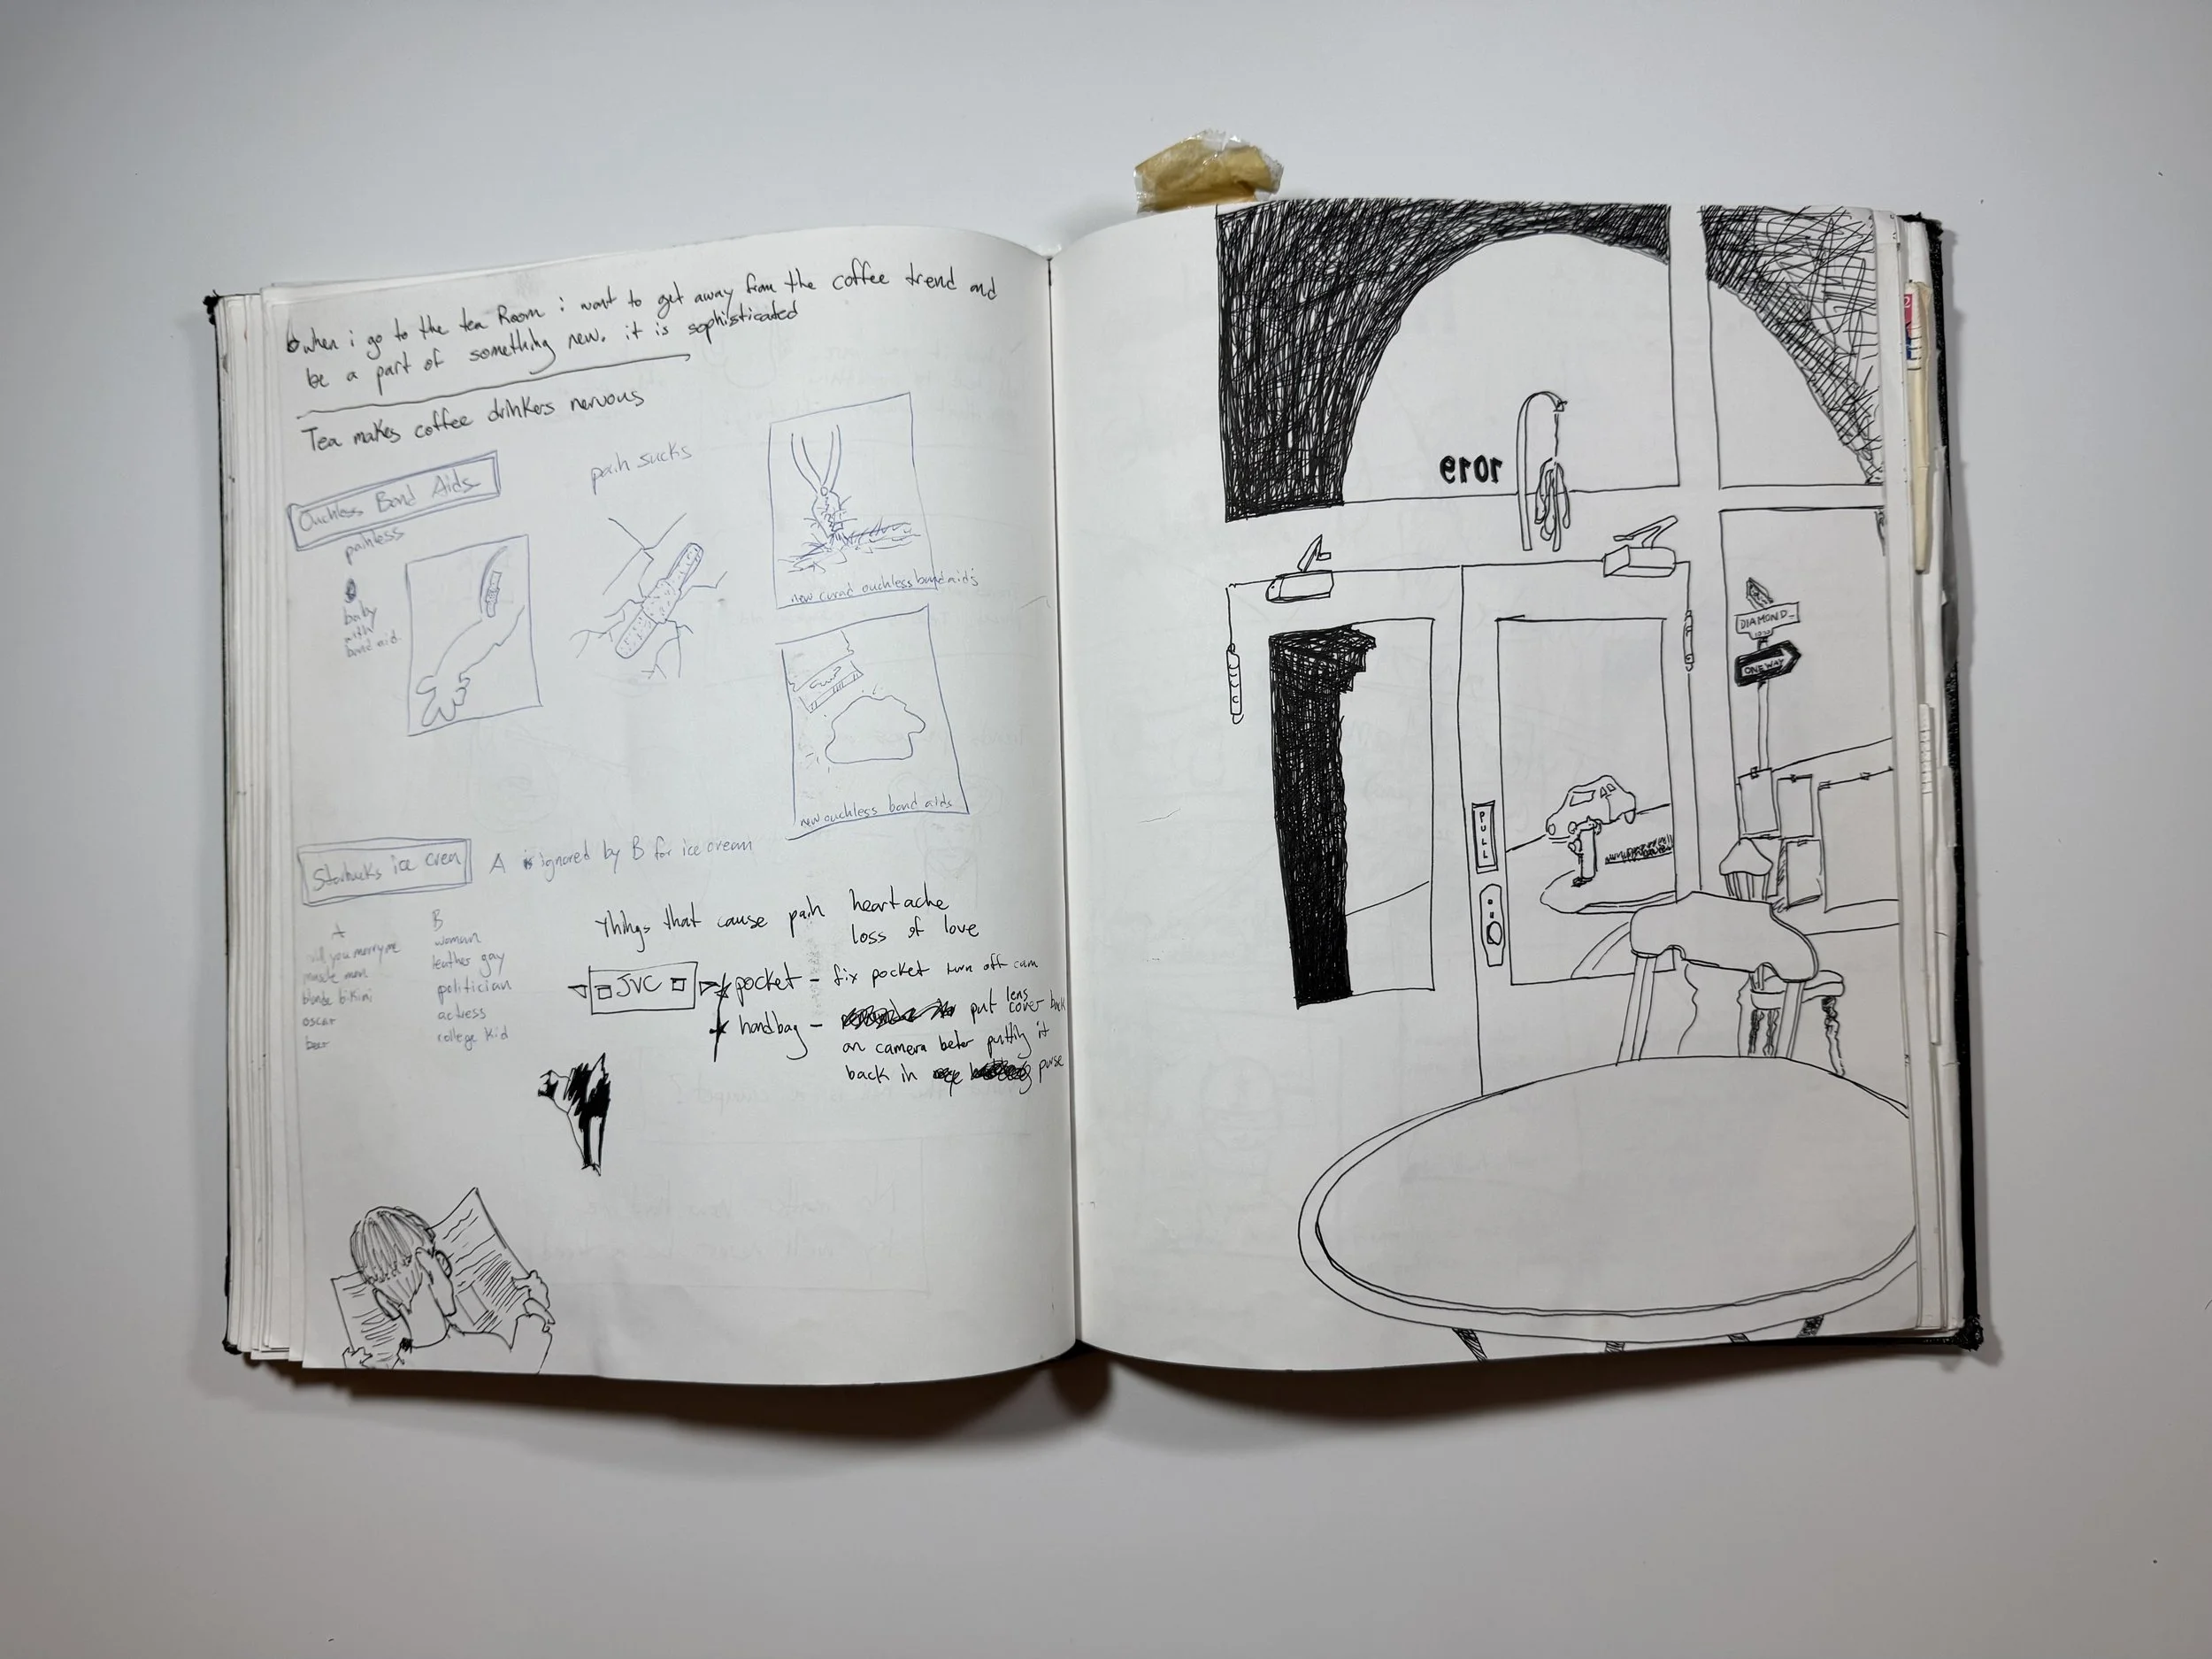 when i go to the tea Room i want to get away from the coffee trend and
be a part of something new. it is sophisticated
Tea makes coffee drinkers nervous
Ouchless Band Aids
painless
baby
with
band aid.
pain sucks
new curad ouchless band aids
new ouchless band aids
Starbucks ice cream
A is ignored by B for ice cream
A
will you marry me
muscle man
blonde bikini
oscar
beer
B
woman
leather gay
politician
actress
college kid
Things that cause pain heartache
loss of love
JVC
pocket - fix pocket turn off cam
handbag - put lens cover back
on camera befor putting it
back in purse
1019
DIAMOND
ONE WAY
PULL